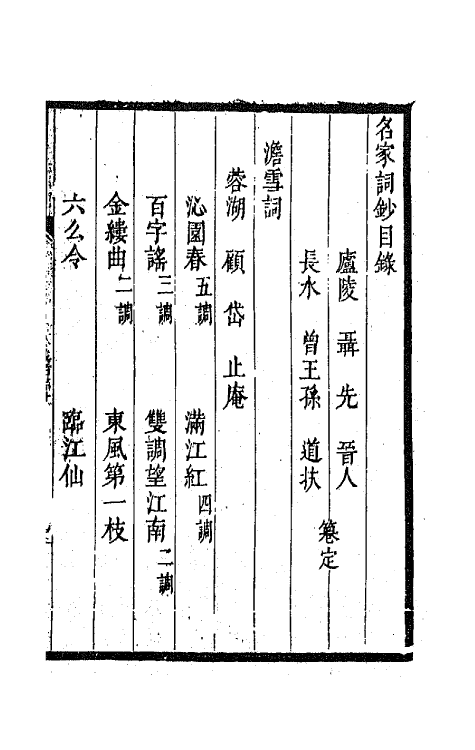 名家詞鈔目錄
廬陵 聶先 晉人
長水 曾王孫 道扶
篹定
澹雪詞
蓉湖 顧岱 止庵
沁園春五調 滿江紅四調
百字謠三調 雙調望江南二調
金縷曲二調 東風第一枝
六么令 臨江仙